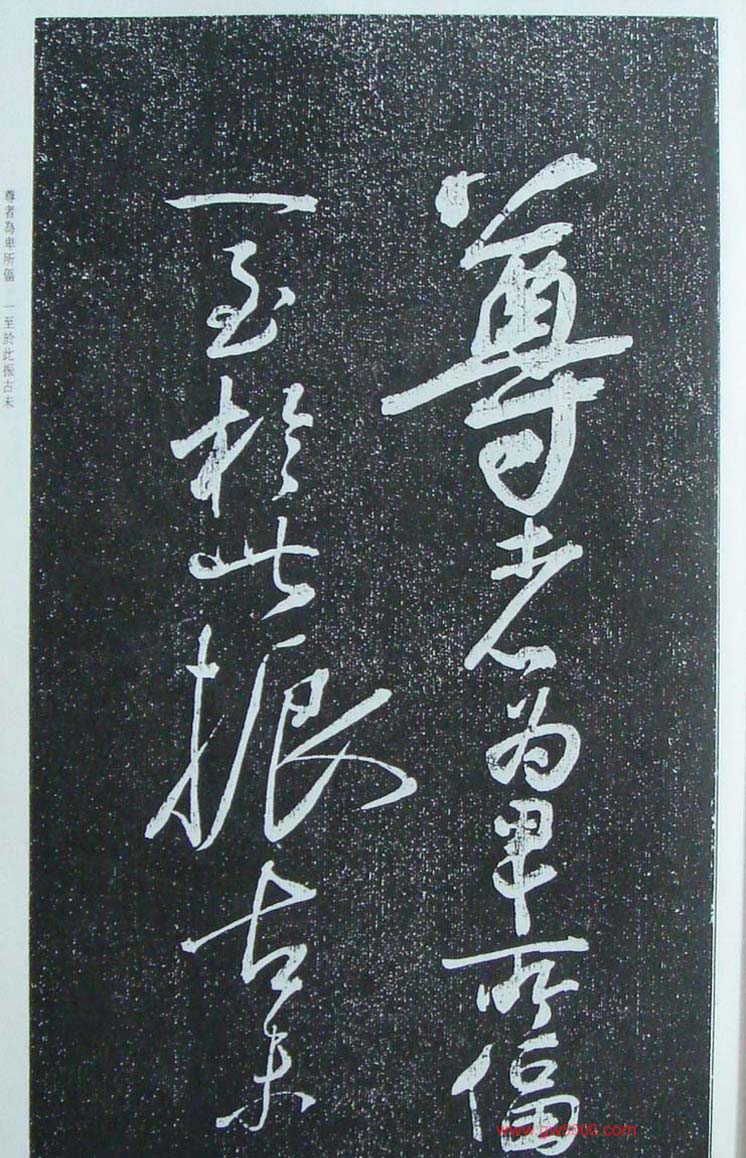 尊者為卑所偪
一至於此振古未
尊者為卑所偪　一至於此振古未